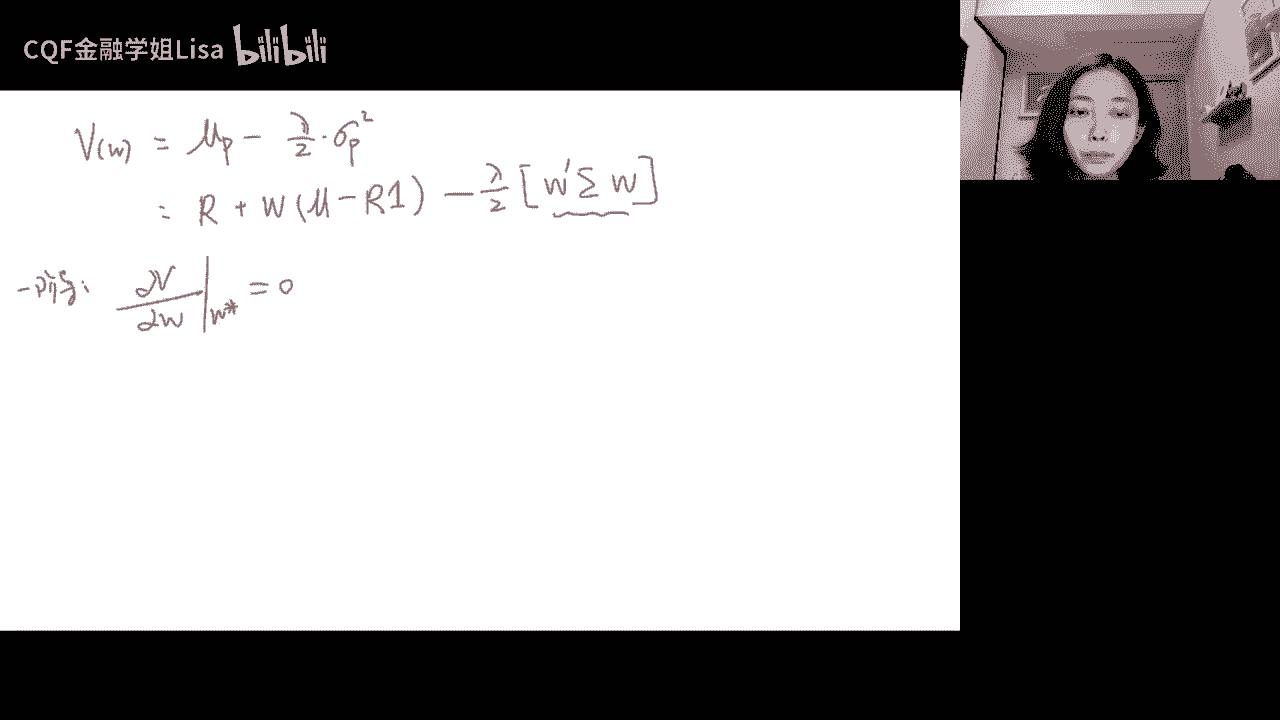 CQF金融学姐Lisa bilibili
V(w) = μp − λ/2 · σp²
= R + W(μ − R1) − λ/2 [w′Σw]
一阶导: ∂V/∂w |w* = 0